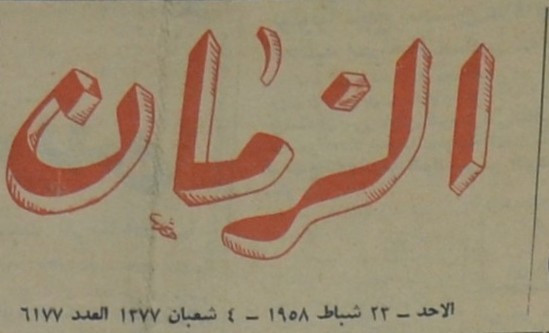 الزمان
الاحد - ٢٣ شباط ١٩٥٨ - ٤ شعبان ١٣٧٧ العدد ٦١٧٧